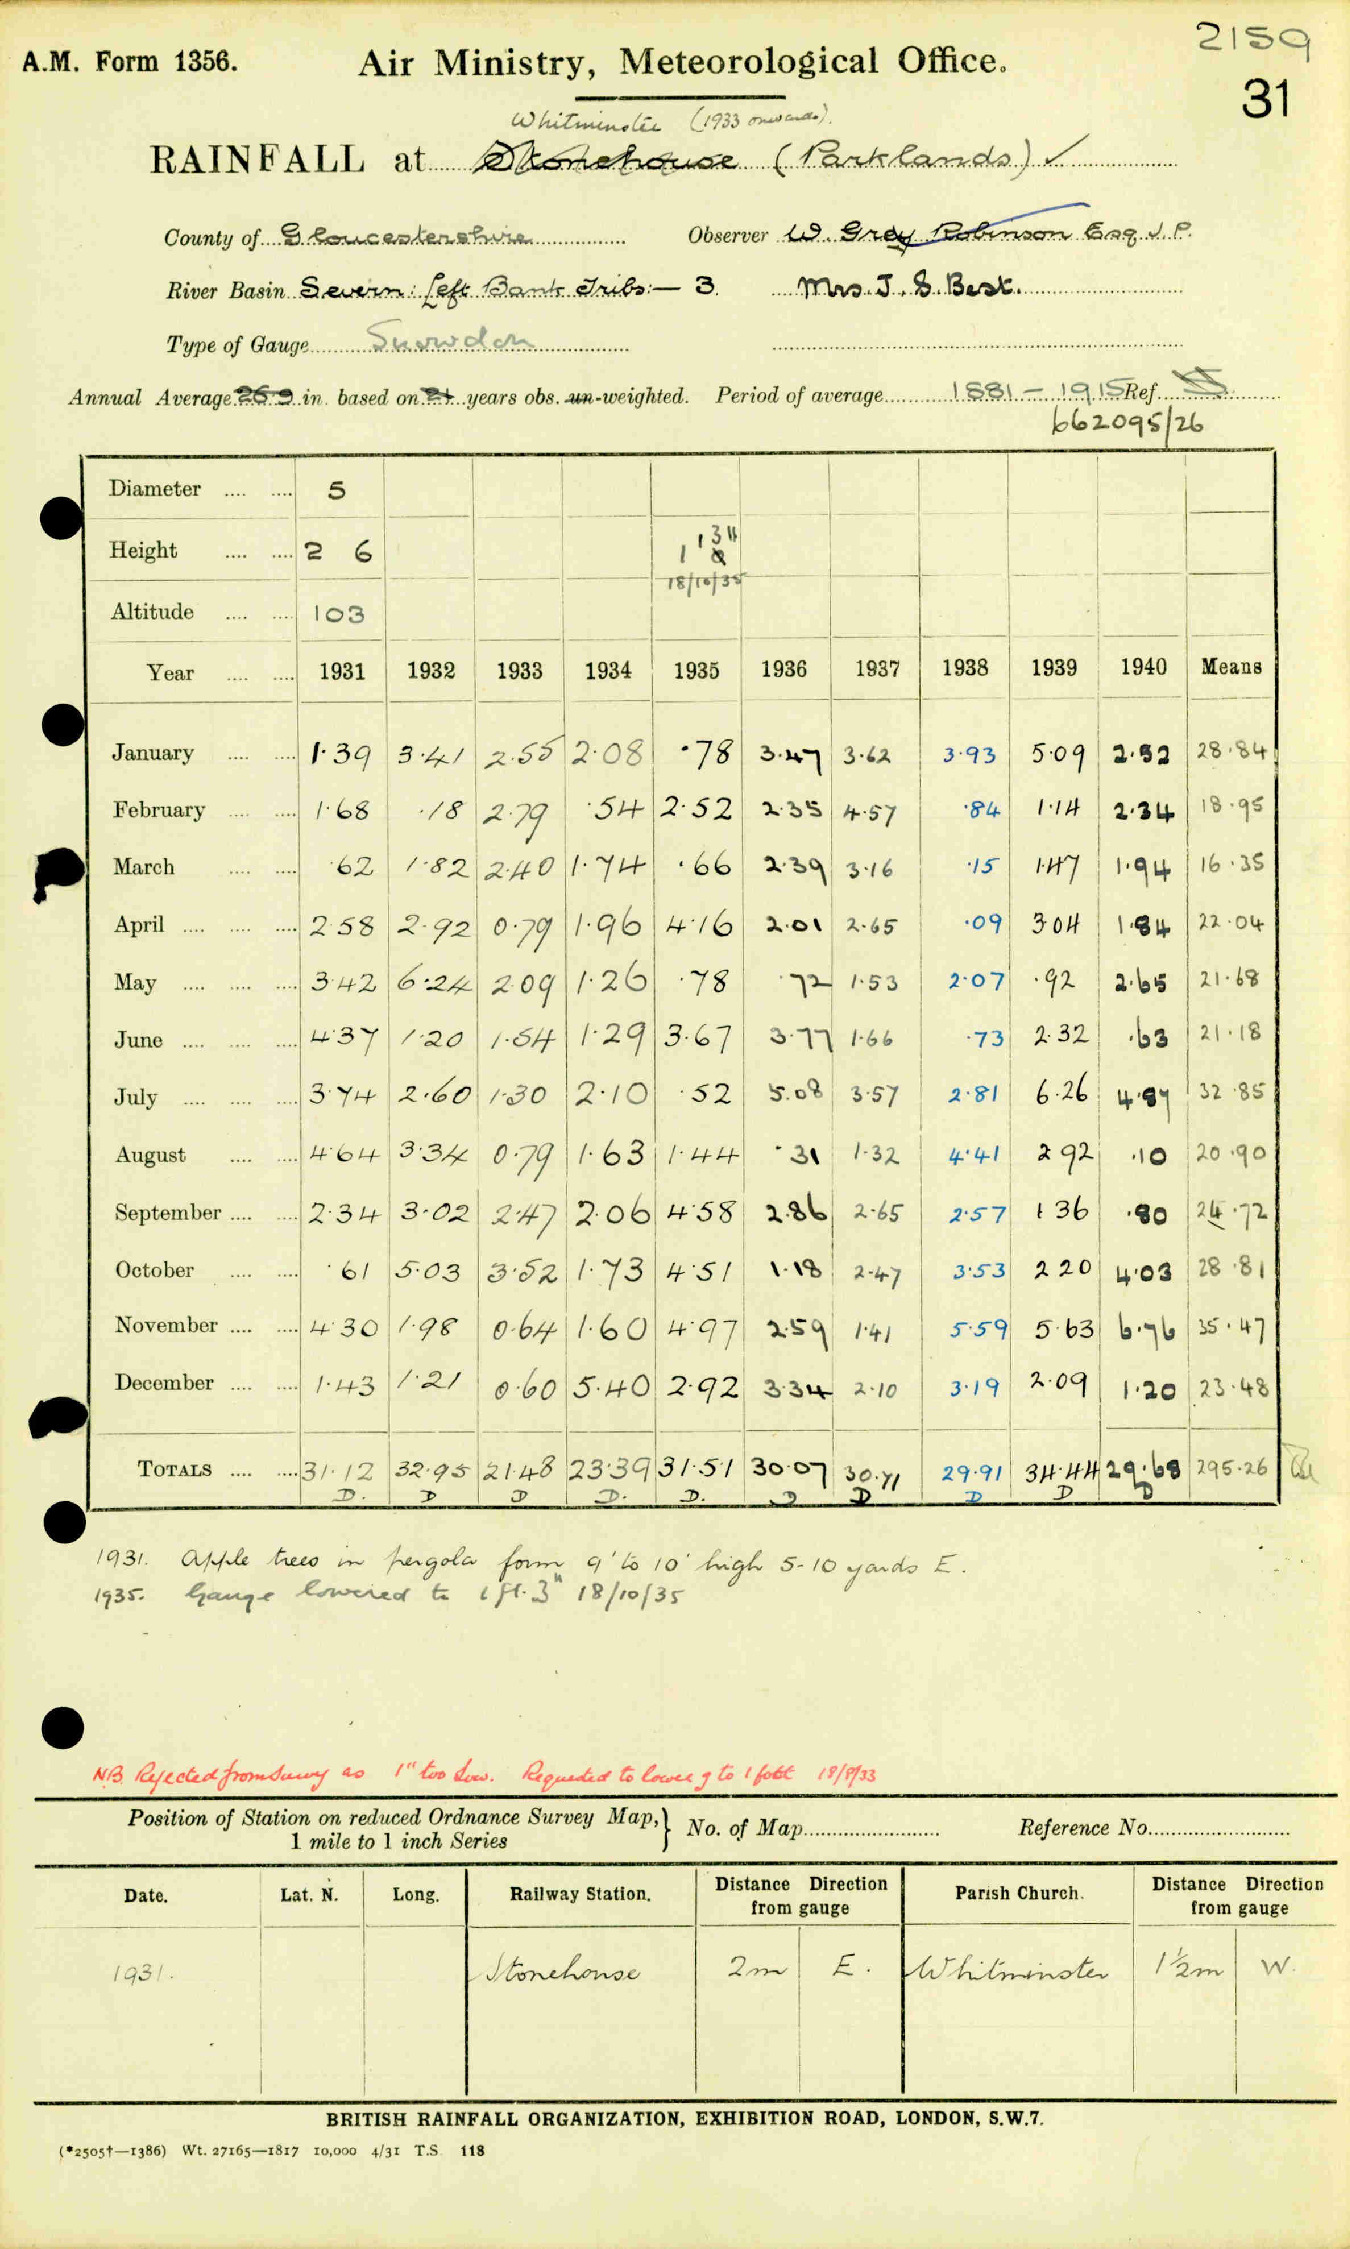 2159
A.M. Form 1356. Air Ministry, Meteorological Office. 31
Whitminster (1933 onwards).
RAINFALL at Stonehouse (Parklands) ✓
County of Gloucestershire Observer W. Grey Robinson Esq J.P.
River Basin Severn: Left Bank Tribs:— 3. Mrs J. S. Best.
Type of Gauge Snowdon
Annual Average 26.9 in. based on 21 years obs. un-weighted. Period of average 1881 – 1915 Ref.
662095/26
Diameter .... .... 5
Height .... .... 2 6 1 3"
18/10/35
Altitude .... .... 103
Year .... .... 1931 1932 1933 1934 1935 1936 1937 1938 1939 1940 Means
January .... .... 1·39 3·41 2·55 2·08 ·78 3·47 3·62 3·93 5·09 2·52 28·84
February .... .... 1·68 ·18 2·79 ·54 2·52 2·35 4·57 ·84 1·14 2·34 18·95
March .... .... ·62 1·82 2·40 1·74 ·66 2·39 3·16 ·15 1·47 1·94 16·35
April .... .... .... 2·58 2·92 0·79 1·96 4·16 2·01 2·65 ·09 3·04 1·84 22·04
May .... .... .... 3·42 6·24 2·09 1·26 ·78 ·72 1·53 2·07 ·92 2·65 21·68
June .... .... .... 4·37 1·20 1·54 1·29 3·67 3·77 1·66 ·73 2·32 ·63 21·18
July .... .... .... 3·74 2·60 1·30 2·10 ·52 5·08 3·57 2·81 6·26 4·87 32·85
August .... .... 4·64 3·34 0·79 1·63 1·44 ·31 1·32 4·41 2 92 ·10 20·90
September .... .... 2·34 3·02 2·47 2·06 4·58 2·86 2·65 2·57 1 36 ·80 24·72
October .... .... ·61 5·03 3·52 1·73 4·51 1·18 2·47 3·53 2 20 4·03 28·81
November .... .... 4·30 1·98 0·64 1·60 4·97 2·59 1·41 5·59 5·63 6·76 35·47
December .... .... 1·43 1·21 0·60 5·40 2·92 3·34 2·10 3·19 2·09 1·20 23·48
TOTALS .... .... 31·12 32·95 21·48 23·39 31·51 30·07 30·71 29·91 34·44 29·68 295·26
D. D D D. D. D D D D D
1931. Apple trees in pergola form 9' to 10' high 5-10 yards E.
1935. Gauge lowered to 1 ft. 3" 18/10/35
N.B. Rejected from Survey as 1" too low. Requested to lower g to 1 foot 18/8/33
Position of Station on reduced Ordnance Survey Map,} No. of Map Reference No.
1 mile to 1 inch Series
Date. Lat. N. Long. Railway Station. Distance Direction from gauge Parish Church. Distance Direction from gauge
1931. Stonehouse 2m E. Whitminster 1½m W.
BRITISH RAINFALL ORGANIZATION, EXHIBITION ROAD, LONDON, S.W.7.
(*2505†—1386) Wt. 27165—1817 10,000 4/31 T.S. 118